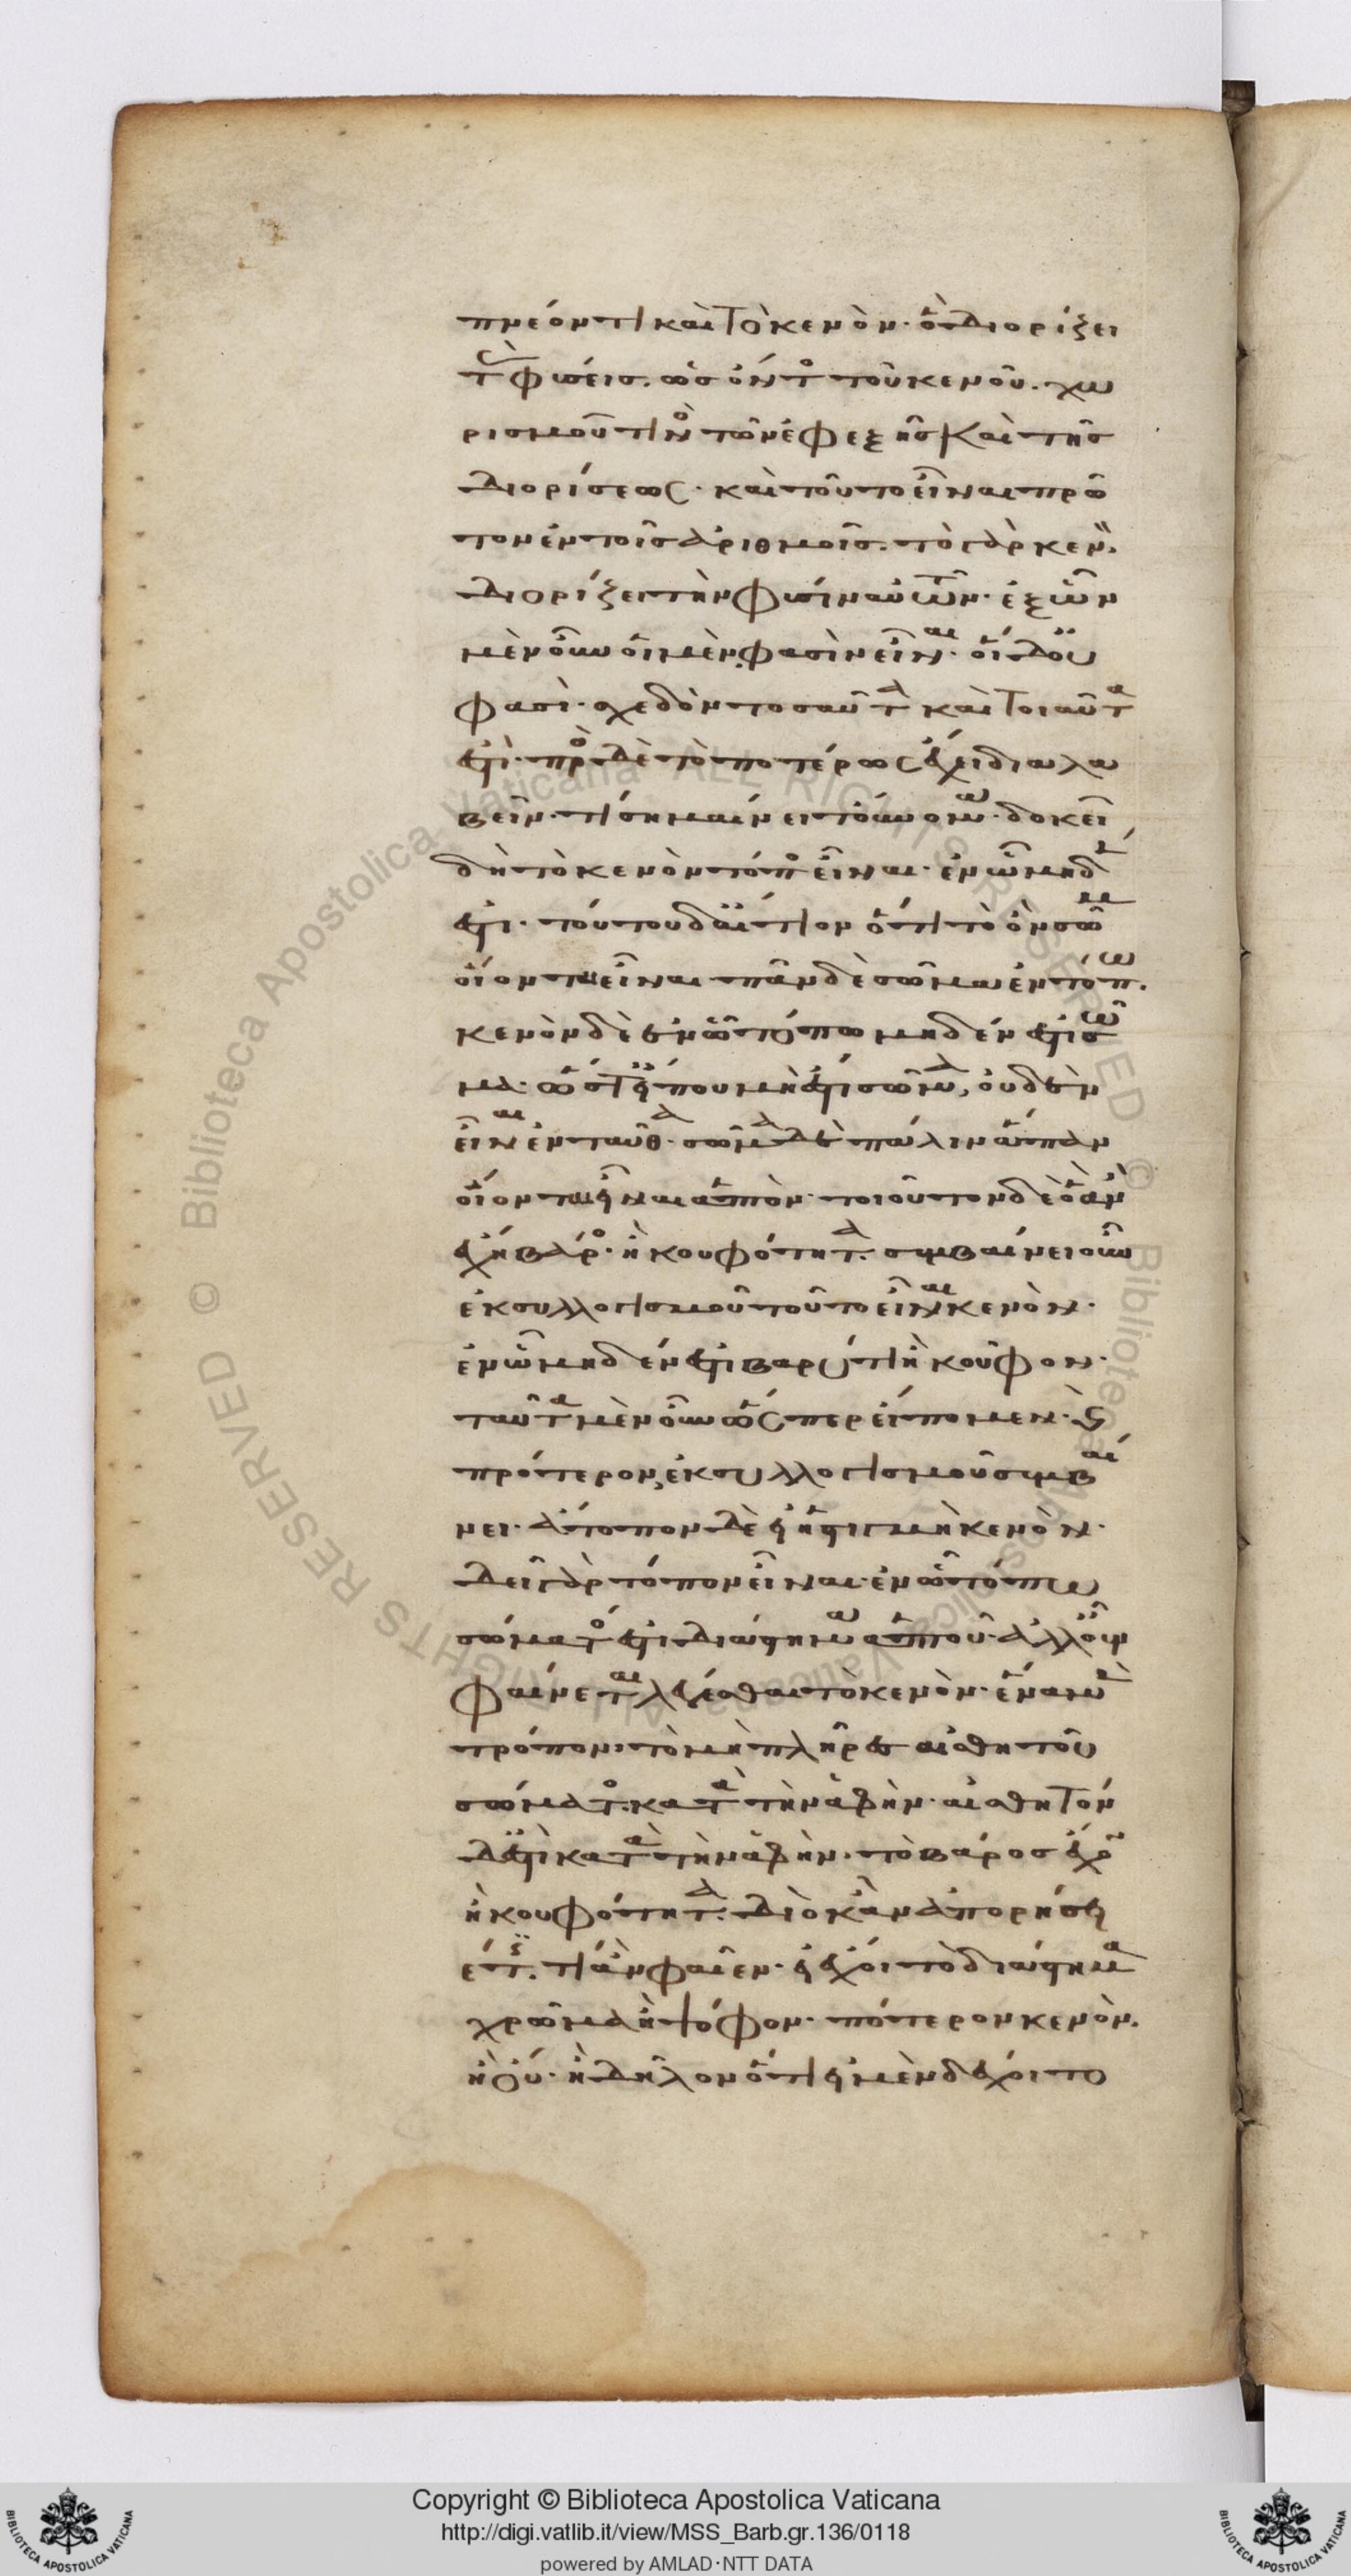 πνέοντι καὶ τὸ κενὸν· ὃ διορίζει
τ φύσεις. ὡς ὄντ τοῦ κενοῦ. χω
ρισμοῦ τιν τῶν ἐφεξῆς καὶ τῆς
διορίσεως· καὶ τοῦτο εἶναι πρῶ
τον ἐν τοῖς ἀριθμοῖς. τὸ γὰρ κεν
διορίζει τὴν φύσιν αὐτῶν· ἐξ ὧν
μὲν οὖν οἱ μὲν φασὶν εἶναι· οἱ δ' οὔ
φασὶ· σχεδὸν τοσαῦτα καὶ τοιαῦτα
ἐστὶ· πρὸς δὲ τὸ ποτέρως ἔχει δεῖ λα
βεῖν· τί σημαίνει τοὔνομα· δοκεῖ
δὴ τὸ κενὸν τόπος εἶναι· ἐν ὧ μηδέν
ἐστι· τούτου δ' αἴτιον ὅτι τὸ ὂν σῶμα
οἴονται εἶναι πᾶν δὲ σῶμα ἐν τόπω.
κενὸν δὲ ἐν ὧ τόπω μηδέν ἐστι σῶ
μα· ὥστ' εἴ που μὴ ἔστι σῶμα, οὐδὲν
εἶναι ἐνταῦθα· σῶμα δὲ πάλιν ἅπαν
οἴονται εἶναι ἁπτὸν· τοιοῦτον δὲ ὃ ἂν
ἔχη βάρος· ἢ κουφότητα. συμβαίνει οὖν
ἐκ συλλογισμοῦ τοῦτο εἶναι κενὸν·
ἐν ὧ μηδέν ἐστι βαρύ τι ἢ κοῦφον·
ταῦτα μὲν οὖν ὥσπερ εἴπομεν· καὶ
πρότερον, ἐκ συλλογισμοῦ συμβαί
νει· ἄτοπον δὲ εἰ ἡ στιγμὴ κενὸν·
δεῖ γὰρ τόπον εἶναι· ἐν ὧ τόπω
σώματός ἐστι διάστημα ἁπτοῦ· ἀλλ' οὖν
φαίνεται λέγεσθαι τὸ κενὸν· ἕνα μὲν
τρόπον· τὸ μὴ πλῆρες αἰσθητοῦ
σώματος· κατὰ τὴν ἁφὴν· αἰσθητὸν
δ' ἐστὶ κατὰ τὴν ἁφὴν· τὸ βάρος ἔχον
ἢ κουφότητα· διὸ κἂν ἀπορήσει
ἔτ. τί ἂν φαῖεν· εἰ ἔχοι τὸ διάστημα
χρῶμα ἢ ψόφον· πότερον κενὸν.
ἢ οὔ· ἢ δῆλον ὅτι εἰ μὲν δέχοιτο
Copyright © Biblioteca Apostolica Vaticana
http://digi.vatlib.it/view/MSS_Barb.gr.136/0118
powered by AMLAD·NTT DATA